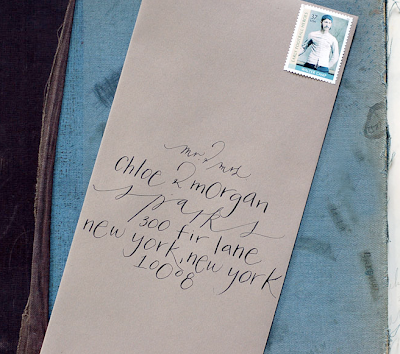 37
mr. & mrs.
chloe & morgan
sparks
300 fir lane
new york, new york
10008